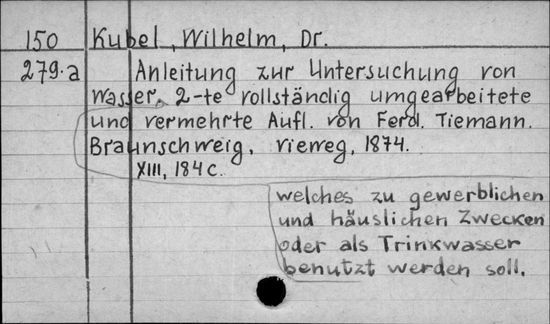 150 Kubel, Wilhelm, Dr.
279.a Anleitung zur Untersuchung von
Wasser, 2-te vollständig umgearbeitete
und vermehrte Aufl. von Ferd. Tiemann.
Braunschweig, Vieweg, 1874.
XIII, 184 c.
welches zu gewerblichen
und häuslichen Zwecken
oder als Trinkwasser
benutzt werden soll.